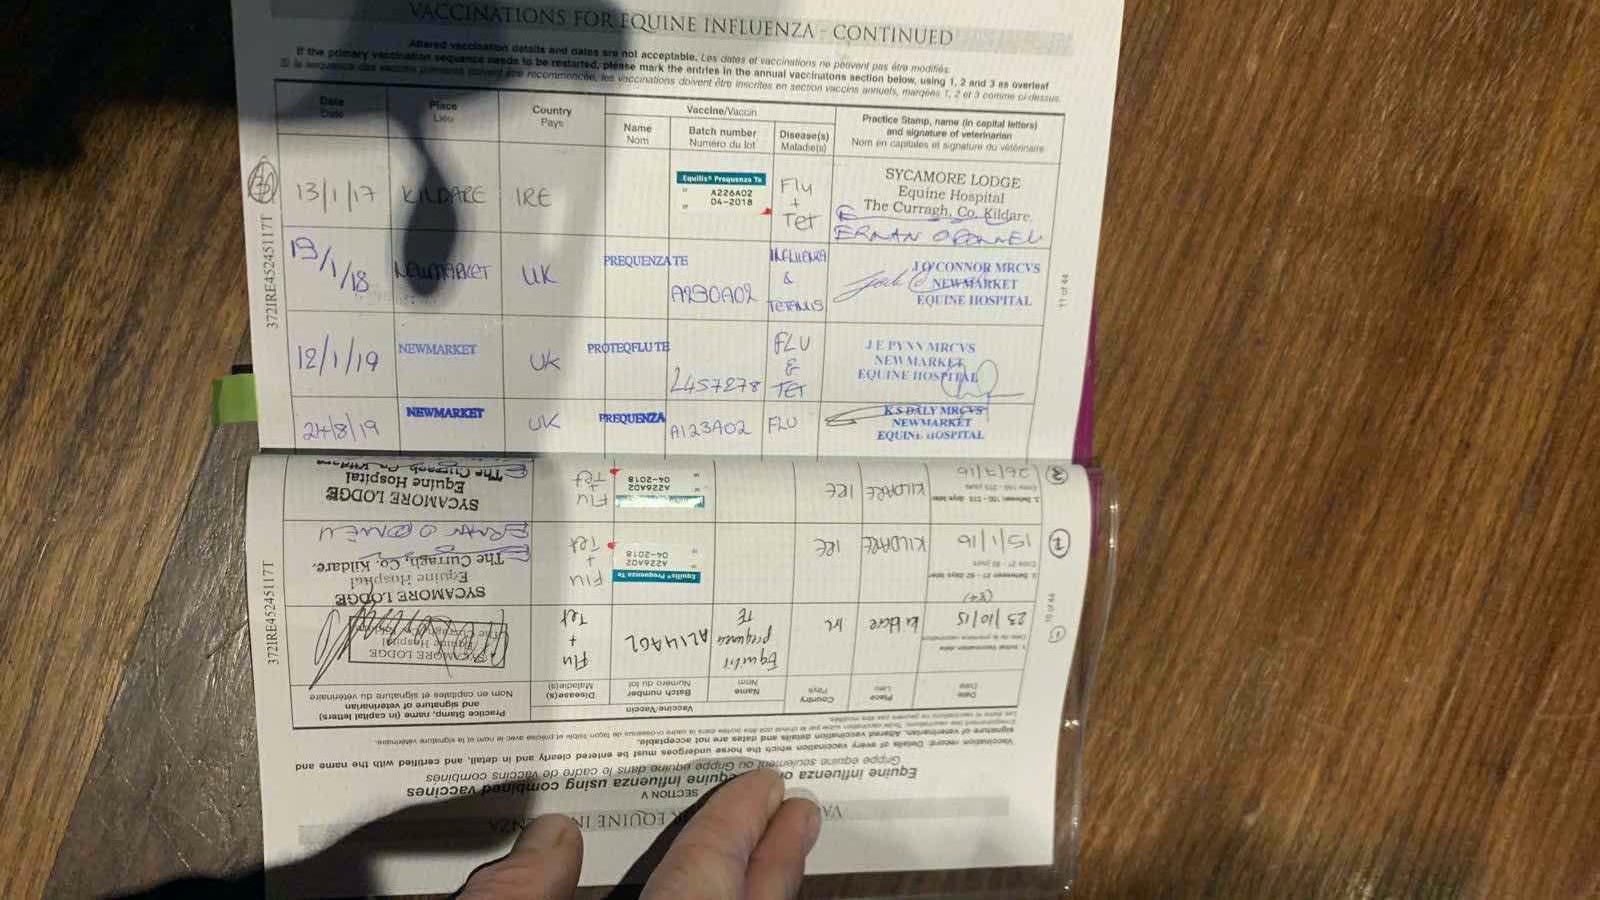 VACCINATIONS FOR EQUINE INFLUENZA - CONTINUED
Altered vaccination details and dates are not acceptable. Les dates et vaccinations ne peuvent pas être modifiés.
If the primary vaccination sequence needs to be restarted, please mark the entries in the annual vaccinatons section below, using 1, 2 and 3 as overleaf
Si la séquence des vaccins primaires doivent être recommencée, les vaccinations doivent être inscrites en section vaccins annuels, marquées 1, 2 et 3 comme ci-dessus.
Date Place Country Vaccine/Vaccin Practice Stamp, name (in capital letters)
and signature of veterinarian
Date Lieu Pays Name Batch number Disease(s)
Nom Numéro du lot Maladie(s) Nom en capitales et signature du vétérinaire
3 13/1/17 KILDARE IRE Equilis® Prequenza Te
A226A02
04-2018
Fly
+
Tet
SYCAMORE LODGE
Equine Hospital
The Curragh, Co. Kildare.
19/1/18 NEWMARKET UK PREQUENZA TE A230A02
INFLUENZA
&
TETANUS
J O'CONNOR MRCVS
NEWMARKET
EQUINE HOSPITAL
12/1/19 NEWMARKET UK PROTEQFLU TE L457278
FLU
&
TET
J E PYNN MRCVS
NEWMARKET
EQUINE HOSPITAL
24/8/19 NEWMARKET UK PREQUENZA A123A02 FLU
K S DALY MRCVS
NEWMARKET
EQUINE HOSPITAL
372IRE45245117T
11 of 44
VACCINATIONS FOR EQUINE INFLUENZA
SECTION V
Equine influenza only or equine influenza using combined vaccines
Grippe équine seulement ou Grippe équine dans le cadre de vaccins combinés
Vaccination record: Details of every vaccination which the horse undergoes must be entered clearly and in detail, and certified with the name and
signature of veterinarian. Altered vaccination details and dates are not acceptable.
Date Place Country Vaccine/Vaccin Practice Stamp, name (in capital letters)
and signature of veterinarian
Date Lieu Pays Name Batch number Disease(s)
Nom Numéro du lot Maladie(s) Nom en capitales et signature du vétérinaire
1. Initial Vaccination date
1 23/10/15 Kildare Irl
Equilis
prequenza
TE
A214A02
Flu
+
Tet
SYCAMORE LODGE
Equine Hospital
The Curragh, Co. Kildare
(84)
2. Between 21 - 92 days later
2 15/1/16 KILDARE IRE Equilis® Prequenza Te
A226A02
04-2018
Flu
+
Tet
SYCAMORE LODGE
Equine Hospital
The Curragh, Co. Kildare.
3. Between 150 - 215 days later
26/7/16 KILDARE IRE
A226A02
04-2018
Flu
+
Tet
SYCAMORE LODGE
Equine Hospital
The Curragh, Co. Kildare
372IRE45245117T
10 of 44